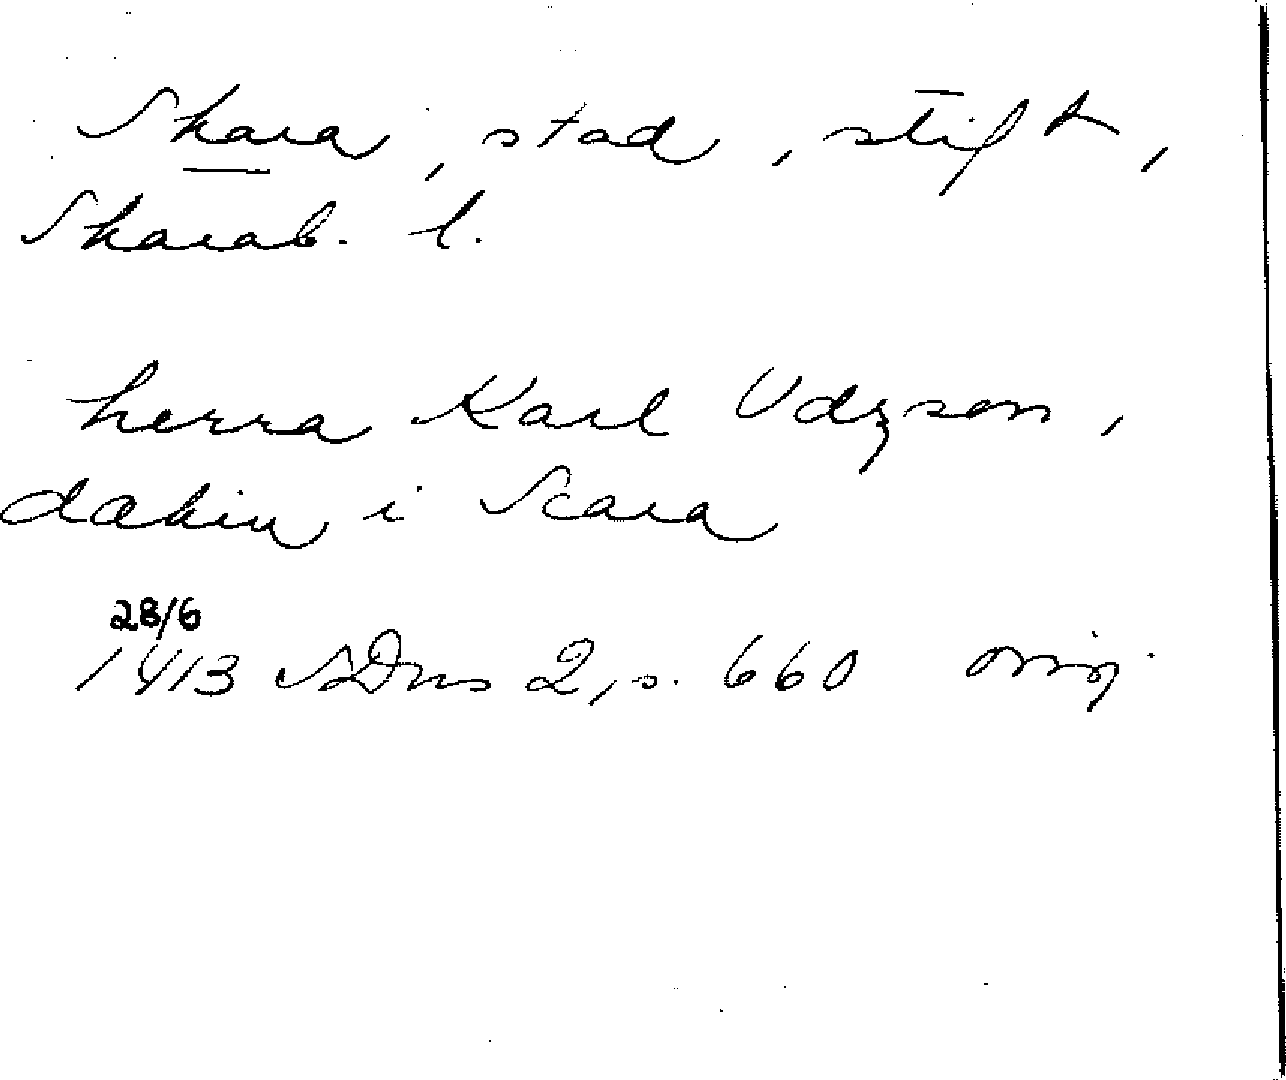 Skara, stad, stift,
Skarab. l.
herra Karl Udzson,
dækin i Scara
28/6
1413 SDns 2, s. 660 orig.